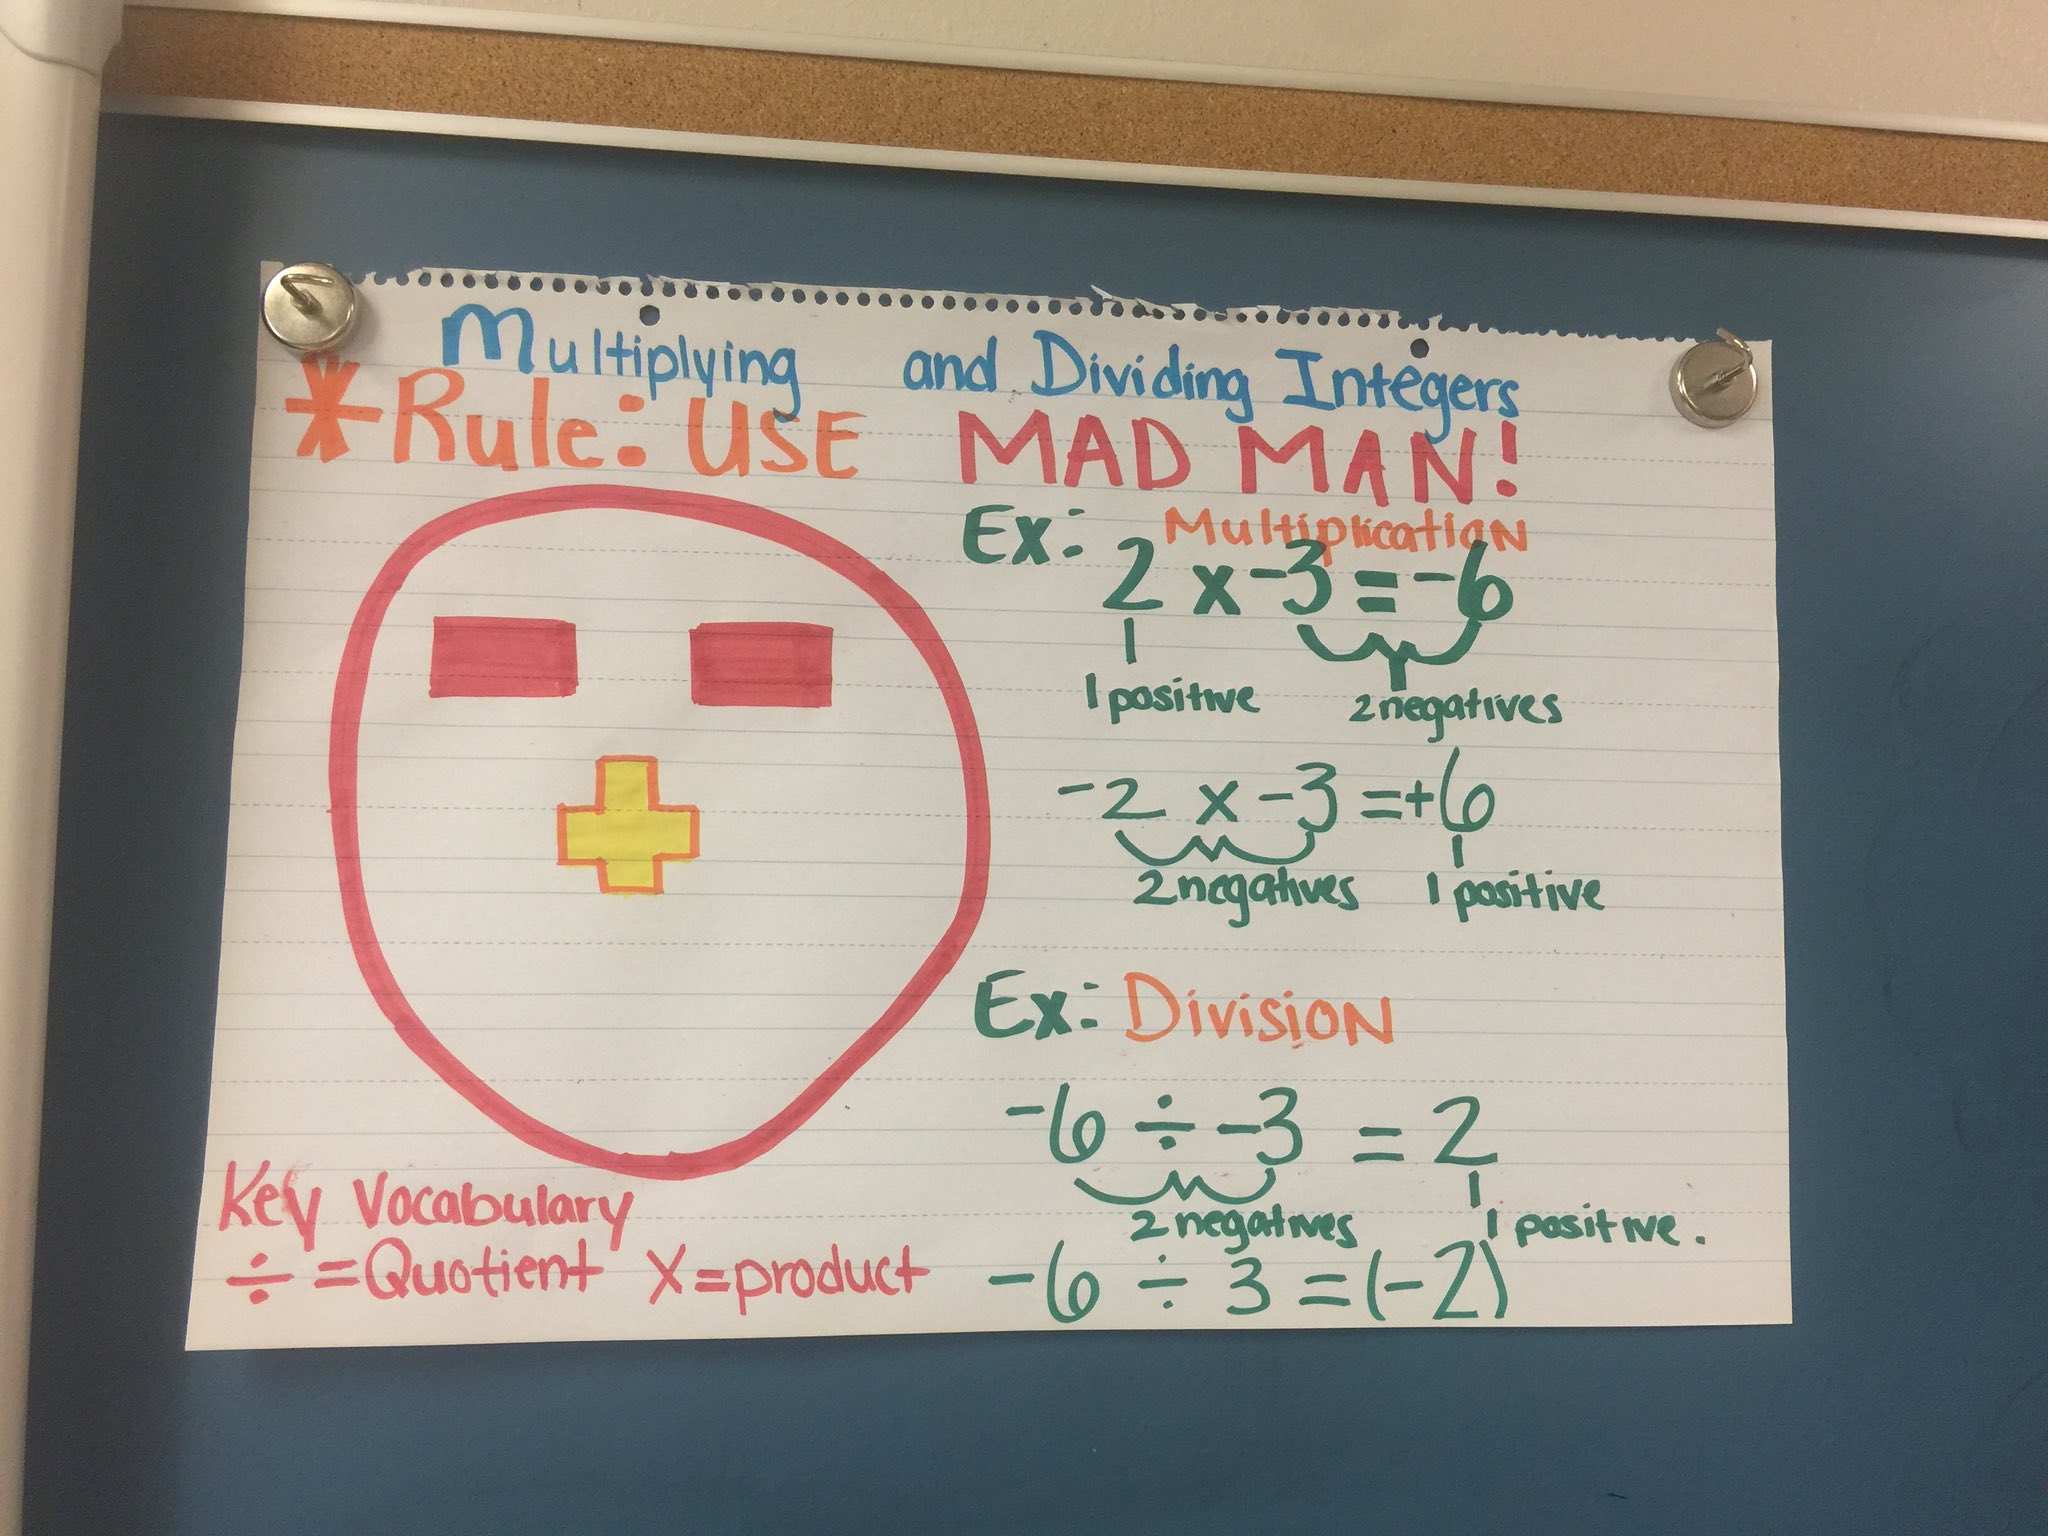 Multiplying and Dividing Integers
*Rule: USE MAD MAN!
Ex: Multiplication
2 x -3 = -6
1 positive 2 negatives
-2 x -3 = +6
2 negatives 1 positive
Ex: Division
-6 ÷ -3 = 2
2 negatives 1 positive.
-6 ÷ 3 = (-2)
Key Vocabulary
÷ = Quotient X = product